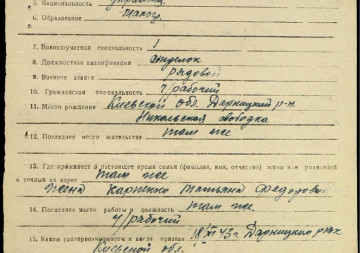 5. Национальность украин.
6. Образование
7. Военноучетная специальность 1
8. Должностная квалификация стрелок
9. Военное звание рядовой
10. Гражданская специальность ч/рабочий
11. Место рождения Киевской обл. Дарницкий р-н
Никольская слободка
12. Последнее место жительства там же
13. Где проживает в настоящее время семья (фамилия, имя, отчество) жены или родителей
и точный их адрес там же
Жена Карпенко Татьяна Федоровна
14. Последнее место работы и должность там же
ч/рабочий
15. Каким райвоенкоматом и когда призван Дарницким
Киевской обл.